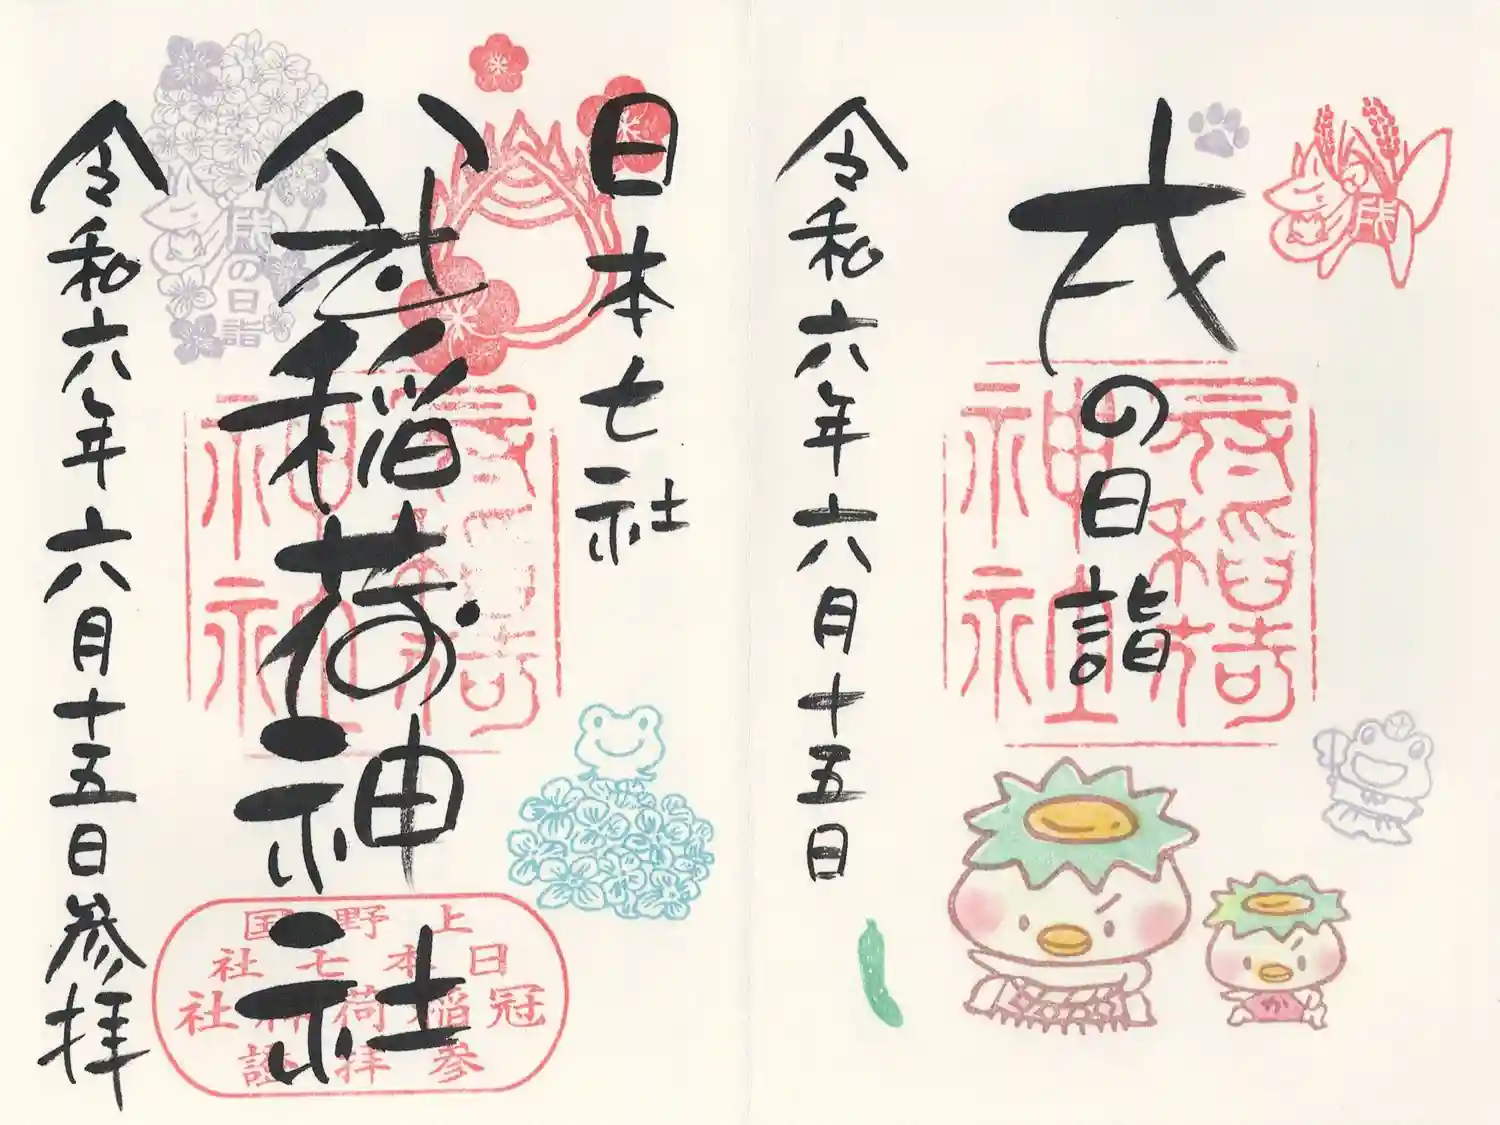 戌
戌の日詣
冠稲荷
神社
令和六年六月十五日
か
日本七社
冠稲荷神社
冠稲荷
神社
戌の日詣
令和六年六月十五日参拝
上野国
日本七社
冠稲荷神社
参拝證